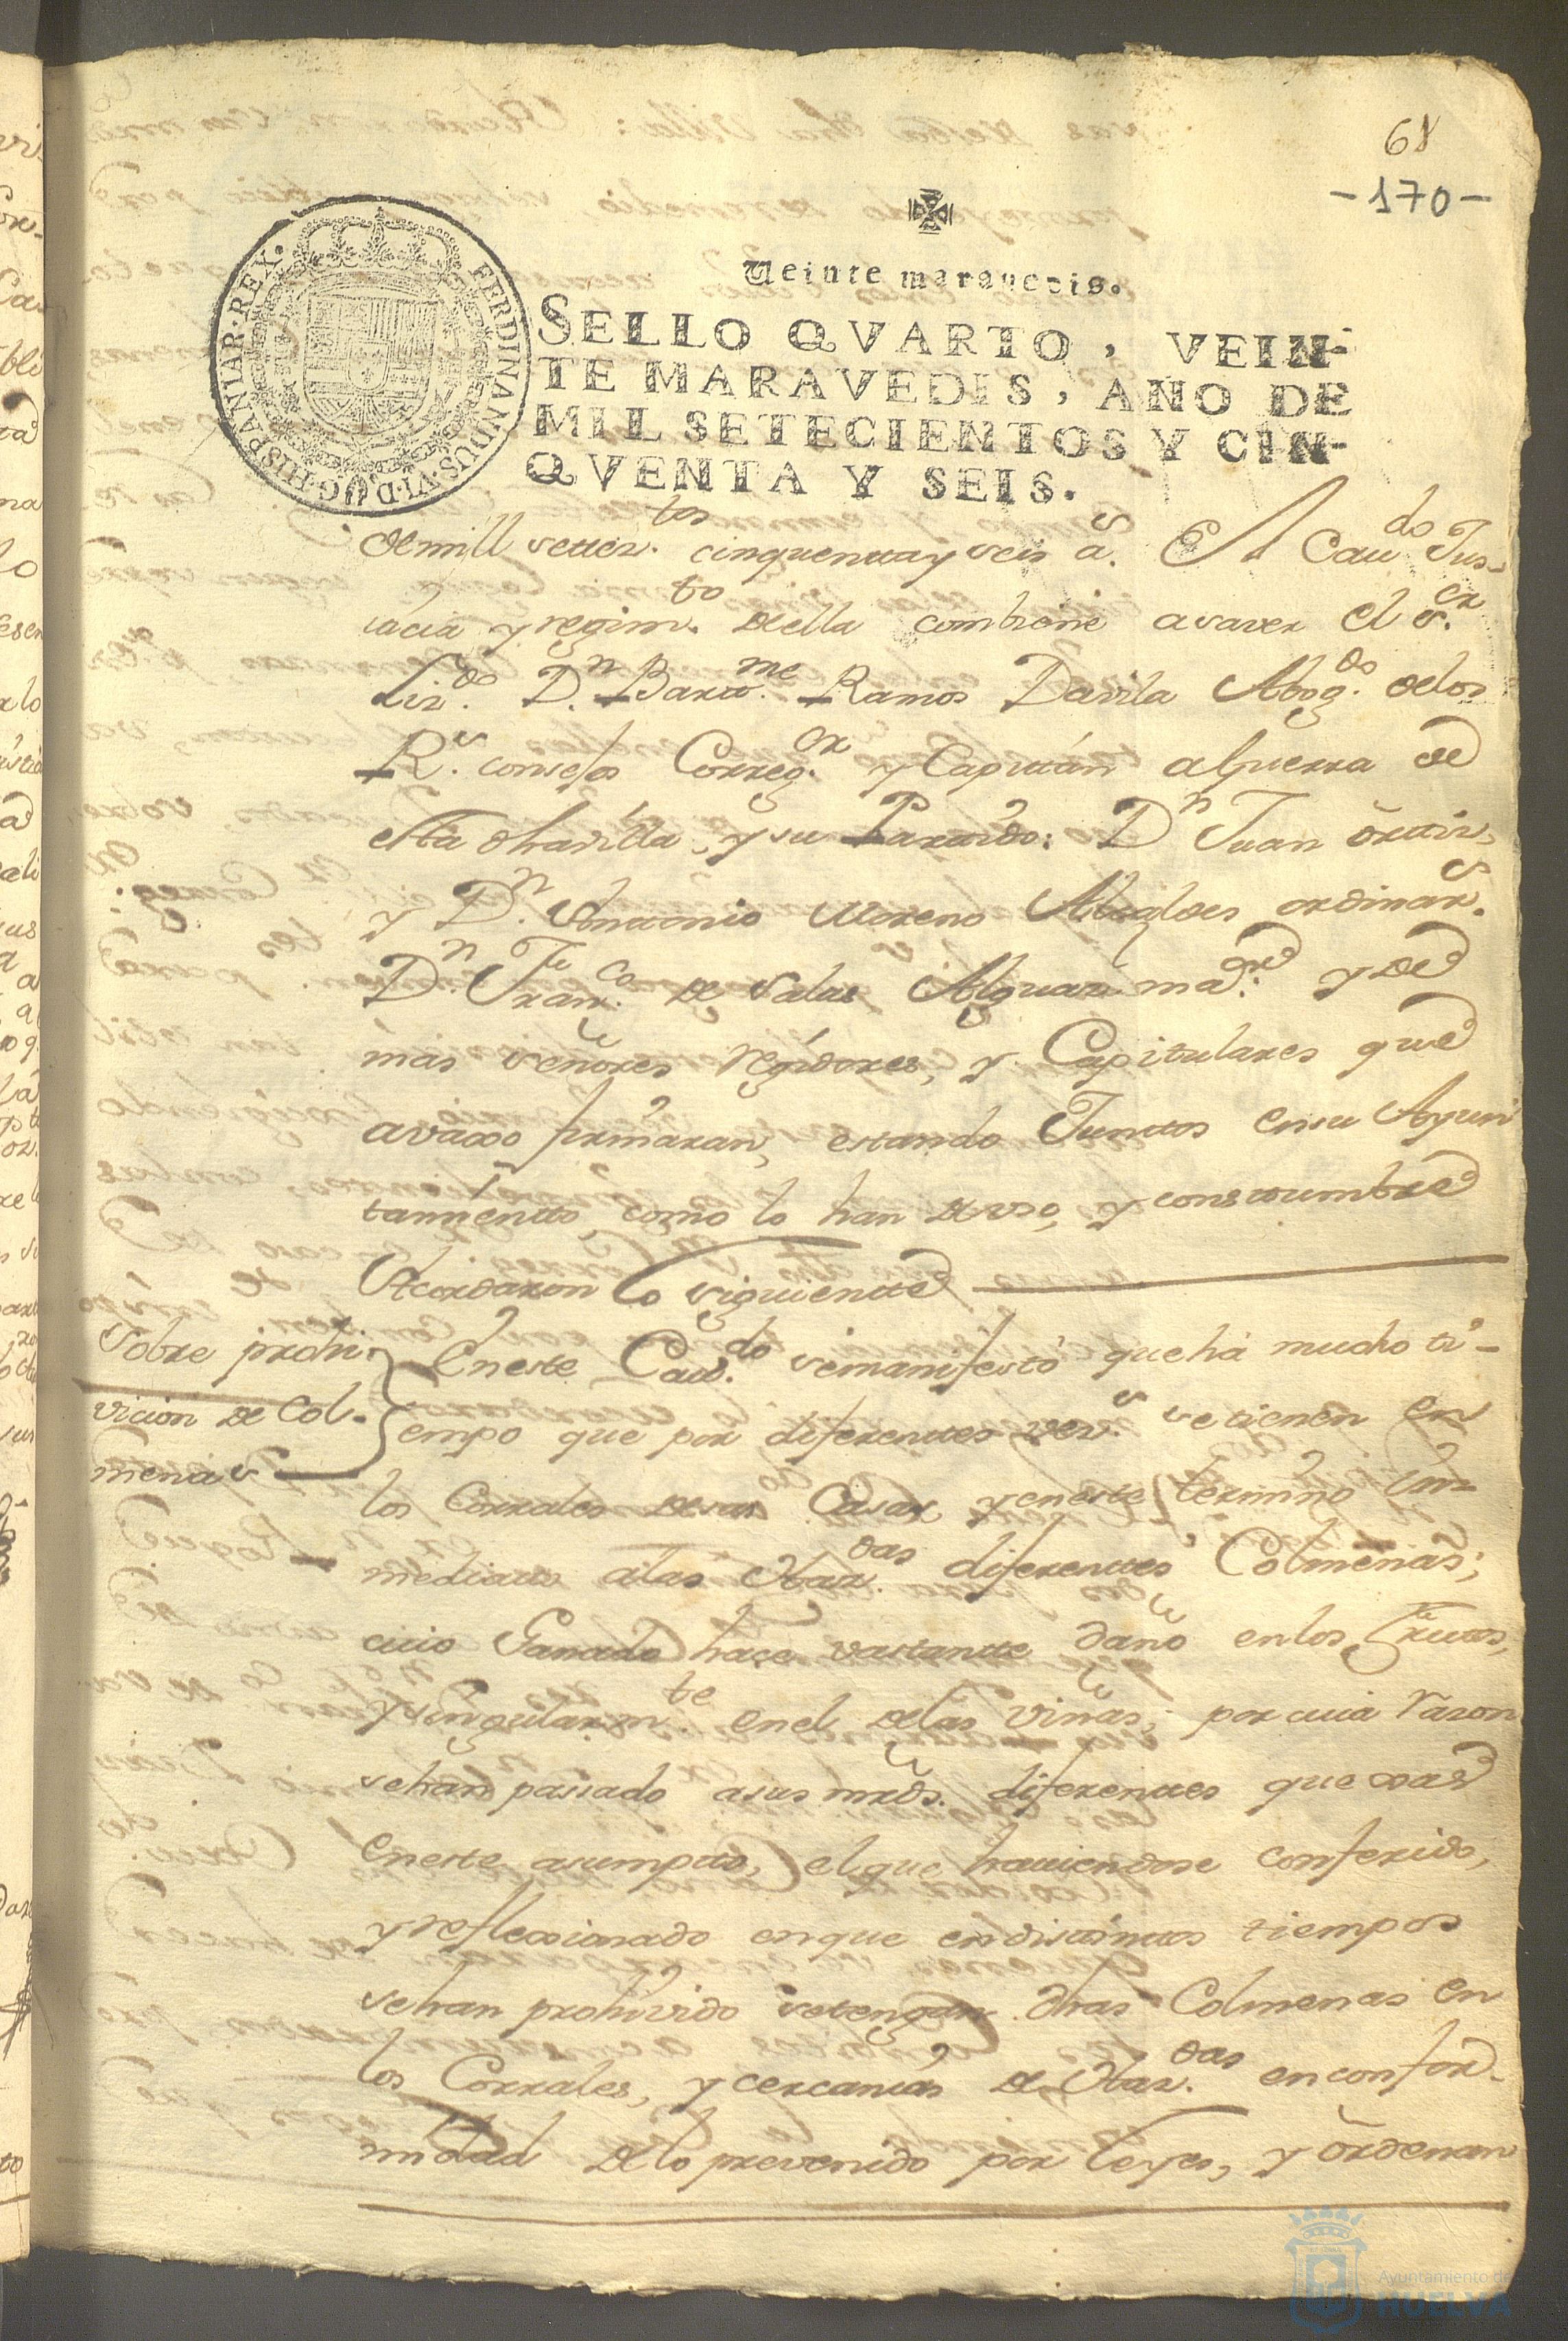 68
-170-
Veinte maravedis.
SELLO QVARTO, VEIN-
TE MARAVEDIS, AÑO DE
MIL SETECIENTOS Y CIN-
QVENTA Y SEIS.
FERDINANDUS·VI·D·G·HISPANIAR·REX·
de mill settez.tos cinquenta y seis a.s El Cau.do Jus-
ticia y regim.to de ella combiene a saver el s.or
Liz.do D.n Barto.me Ramos Davila Abog.do de los
R.s consejos Correg.or y Capitán a Guerra de
esta dha villa, y su Partido: D.n Juan Ortiz,
y D.n Antonio Moreno Alcaldes ordinar.s
D.n Fran.co de Salas Alguaz.l ma.or y de
mas señores regidores, y Capitulares que
avaxo firmaran, estando Juntos en su Ayun
tamiento, como lo han de uso, y constumbre
Acordaron lo siguiente
Sobre prohi-
vicion de Col-
menas
En este Cavd.do se manifestó que há mucho ti-
empo que por diferentes vez.s se tienen en
los Corrales de sus Casas y en este termino in-
mediato a las Otaz.das diferentes Colmenas;
cuio Ganado hace vastante daño en los frutos,
y singularm.te en el de las viñas; por cuia razon
se han passado a sus mrds. diferentes quexas
en este asumpto, el que haviendose conferido,
y reflexionado en que en distintos tiempos
se han prohivido se tengan dhas Colmenas en
los Corrales, y cercanias de Otaz.das en confor-
midad de lo prevenido por Leyes, y ordenan
Ayuntamiento de
HUELVA